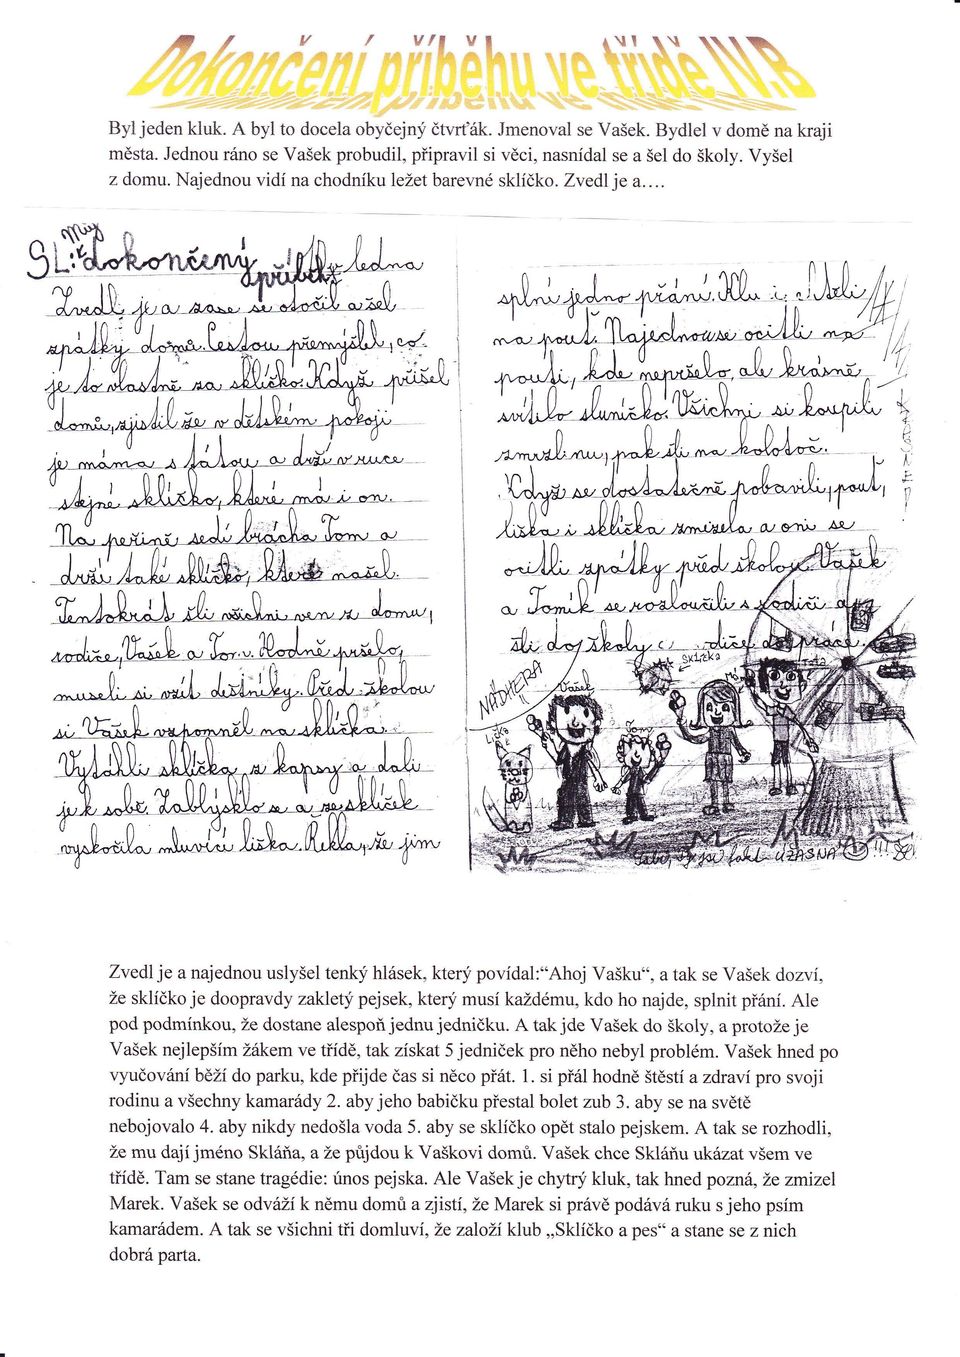 Dokončení příběhu ve třídě IV.B
Byl jeden kluk. A byl to docela obyčejný čtvrťák. Jmenoval se Vašek. Bydlel v domě na kraji
města. Jednou ráno se Vašek probudil, připravil si věci, nasnídal se a šel do školy. Vyšel
z domu. Najednou vidí na chodníku ležet barevné sklíčko. Zvedl je a....
SL: Můj
dokončený
příběh
Zvedl je a zase se otočil a šel
zpátky domů. Cestou přemýšlel, co
je to vlastně za sklíčko. Když přišel
domů, zjistil že v dětském pokoji
je máma s tátou a drží v ruce
stejné sklíčko, které má i on.
Na peřině sedí brácha Tom a
drží také sklíčko, které našel.
Tentokrát šli všichni ven z domu,
rodiče, Vašek a Tom. Hodně pršelo,
museli si vzít deštníky. Před školou
si Vašek vzpomněl na sklíčka.
Vytáhli sklíčka z kapsy a dali
je k sobě. Zablýsklo se a ze sklíček
vyskočila mluvící liška. Řekla, že jim
splní jedno přání. Kluci chtěli
na pouť. Najednou se ocitli na
pouti, kde nepršelo, ale krásně
svítilo sluníčko. Všichni si koupili
zmrzlinu, pak šli na kolotoč.
Když se dostatečně pobavili, pouť,
liška i sklíčka zmizela a oni se
ocitli zpátky před školou. Vašek
a Tomík se rozloučili s rodiči a
šli do školy a rodiče do práce.
NÁDHERA
!!
Sklíčka
Vašek
Tom
Táta
ÚŽASNÁ
!!!
Zvedl je a najednou uslyšel tenký hlásek, který povídal:“Ahoj Vašku“, a tak se Vašek dozví,
že sklíčko je doopravdy zakletý pejsek, který musí každému, kdo ho najde, splnit přání. Ale
pod podmínkou, že dostane alespoň jednu jedničku. A tak jde Vašek do školy, a protože je
Vašek nejlepším žákem ve třídě, tak získat 5 jedniček pro něho nebyl problém. Vašek hned po
vyučování běží do parku, kde přijde čas si něco přát. 1. si přál hodně štěstí a zdraví pro svoji
rodinu a všechny kamarády 2. aby jeho babičku přestal bolet zub 3. aby se na světě
nebojovalo 4. aby nikdy nedošla voda 5. aby se sklíčko opět stalo pejskem. A tak se rozhodli,
že mu dají jméno Skláňa, a že půjdou k Vaškovi domů. Vašek chce Skláňu ukázat všem ve
třídě. Tam se stane tragédie: únos pejska. Ale Vašek je chytrý kluk, tak hned pozná, že zmizel
Marek. Vašek se odváží k němu domů a zjistí, že Marek si právě podává ruku s jeho psím
kamarádem. A tak se všichni tři domluví, že založí klub „Sklíčko a pes“ a stane se z nich
dobrá parta.